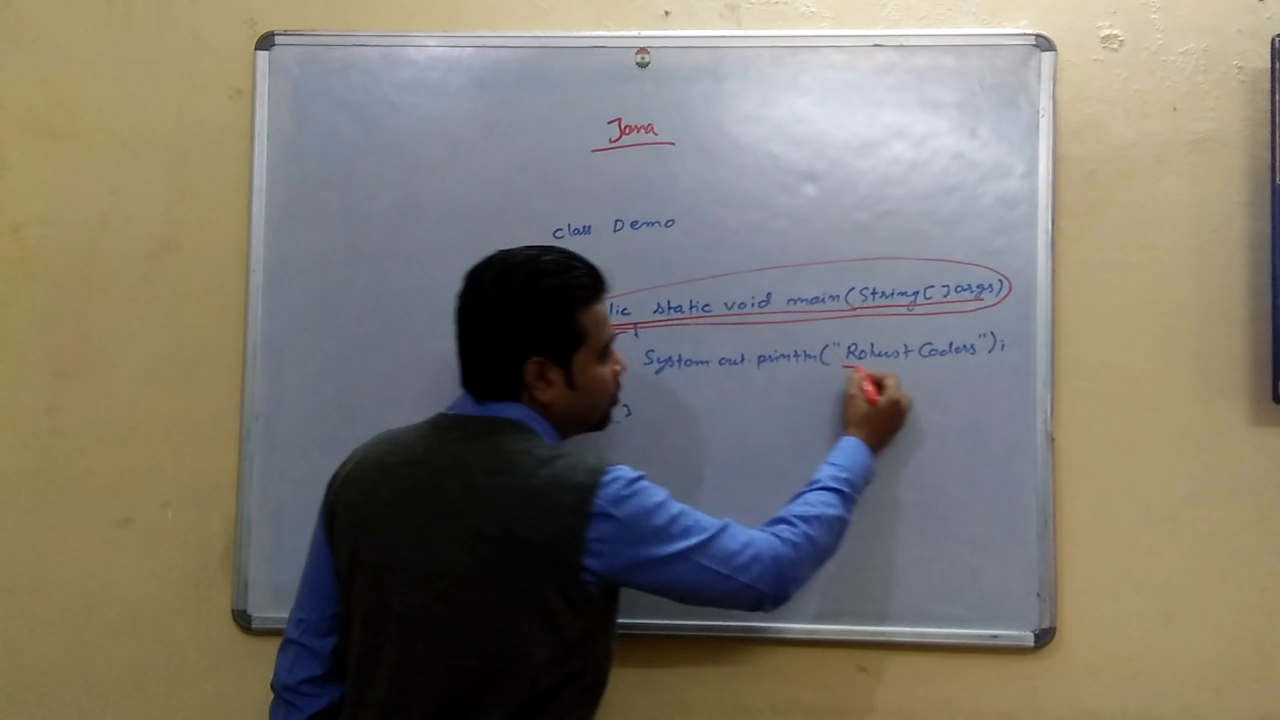 Java
class Demo
lic static void main(String[]args)
{
System.out.println("Robust Coders");
}